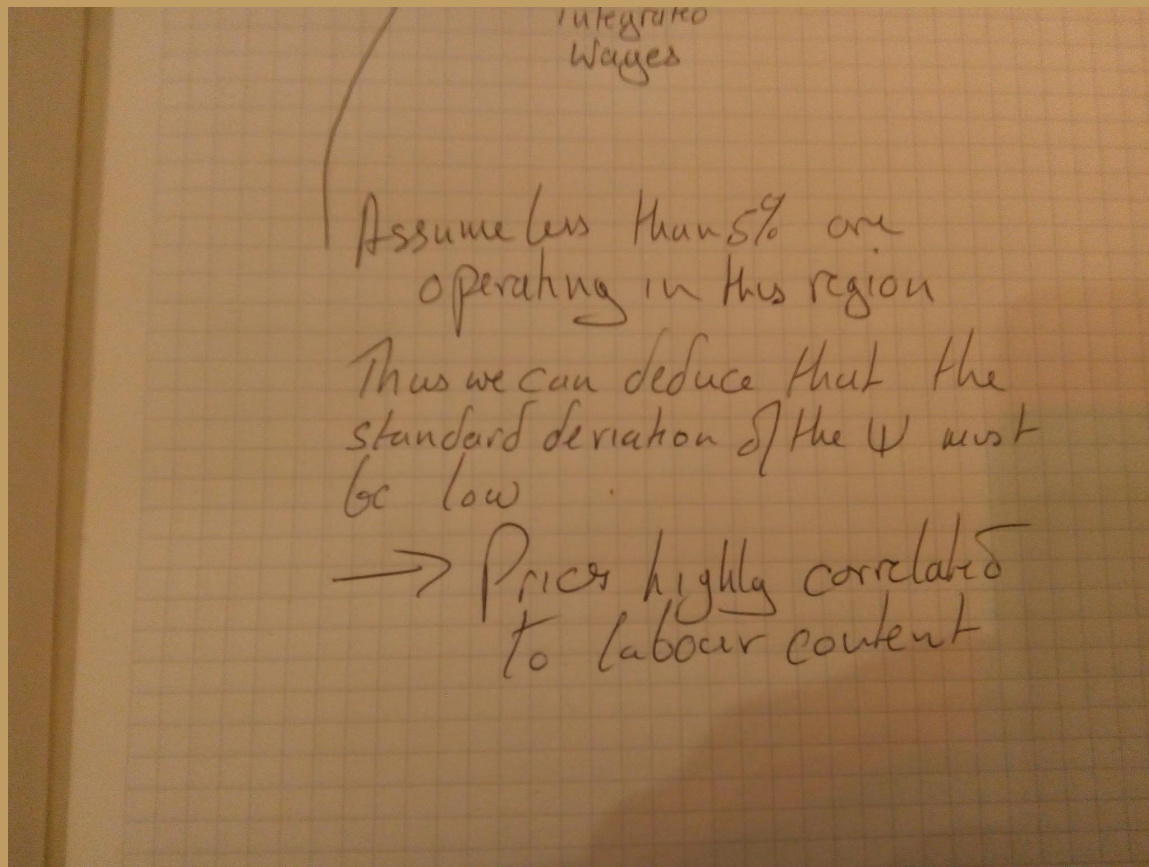 Integrated
Wages
Assume less than 5% are
operating in this region
Thus we can deduce that the
standard deviation of the ψ must
be low
→ Prices highly correlated
to labour content